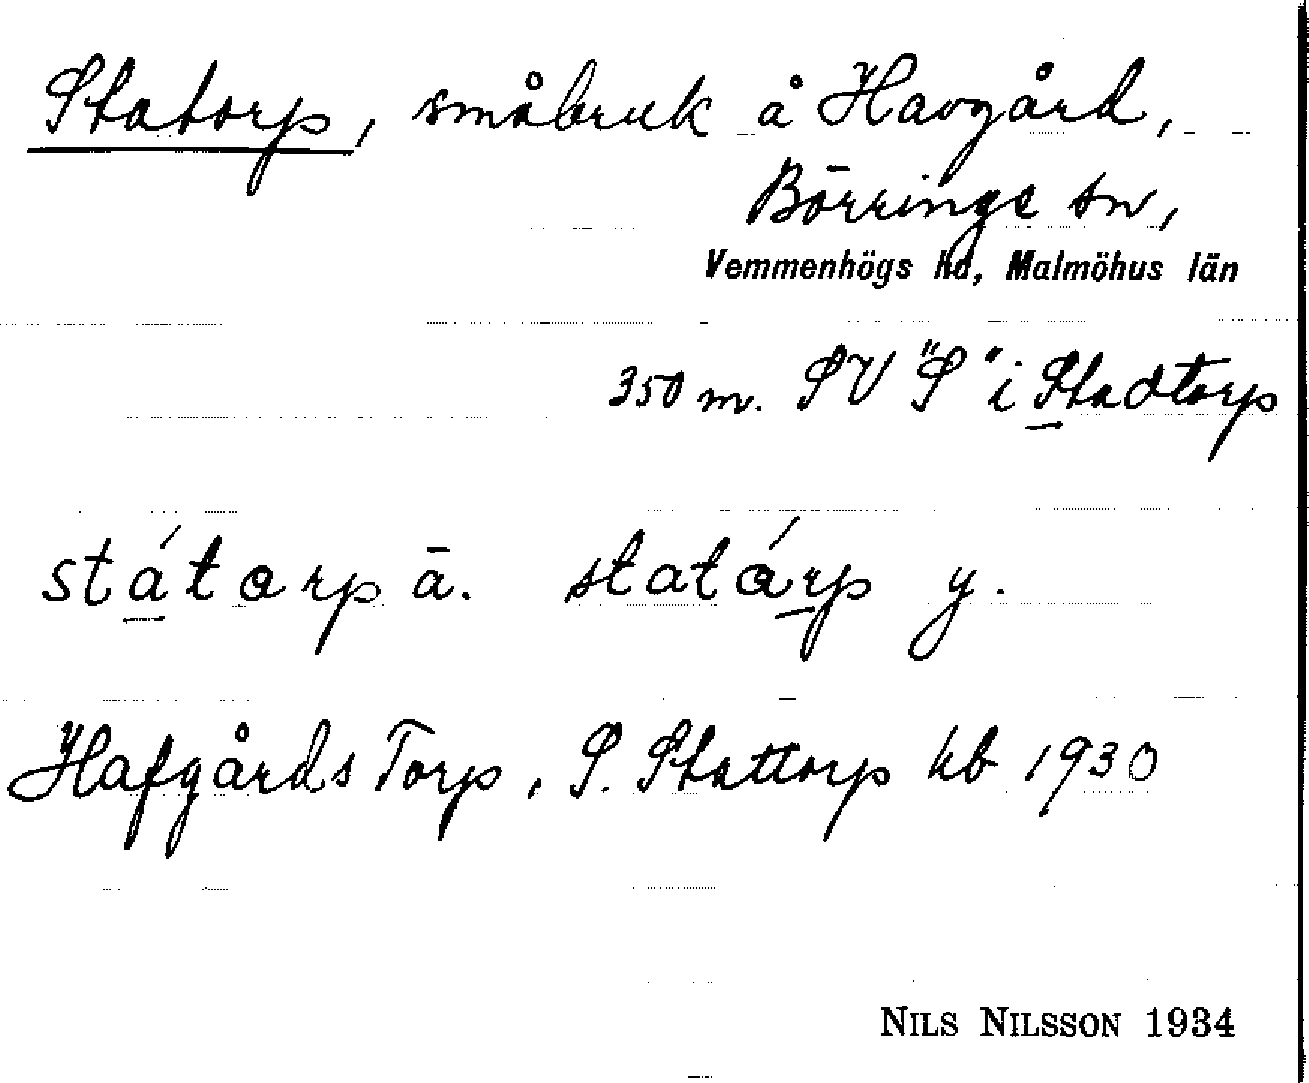 Statorp, småbruk å Havgård,
Börringe sn,
Vemmenhögs hd, Malmöhus län
350 m. SV "S" i Stadtorp
státorp ä. statárp y.
Hafgårds Torp, S. Stattorp kb 1930
NILS NILSSON 1934